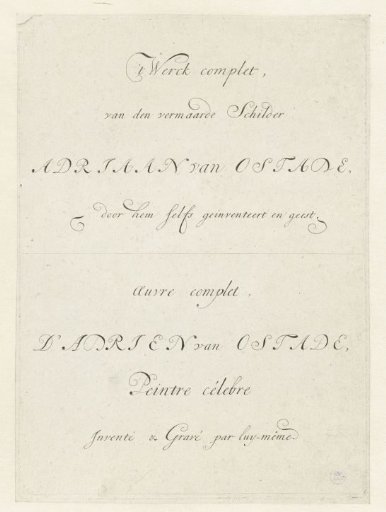 't Werck complet,
van den vermaarde Schilder
ADRIAAN van OSTADE,
door hem selfs geinventeert en geest
Œuvre complet,
D'ADRIEN van OSTADE,
Peintre célebre
Inventé & Gravé par luy-même